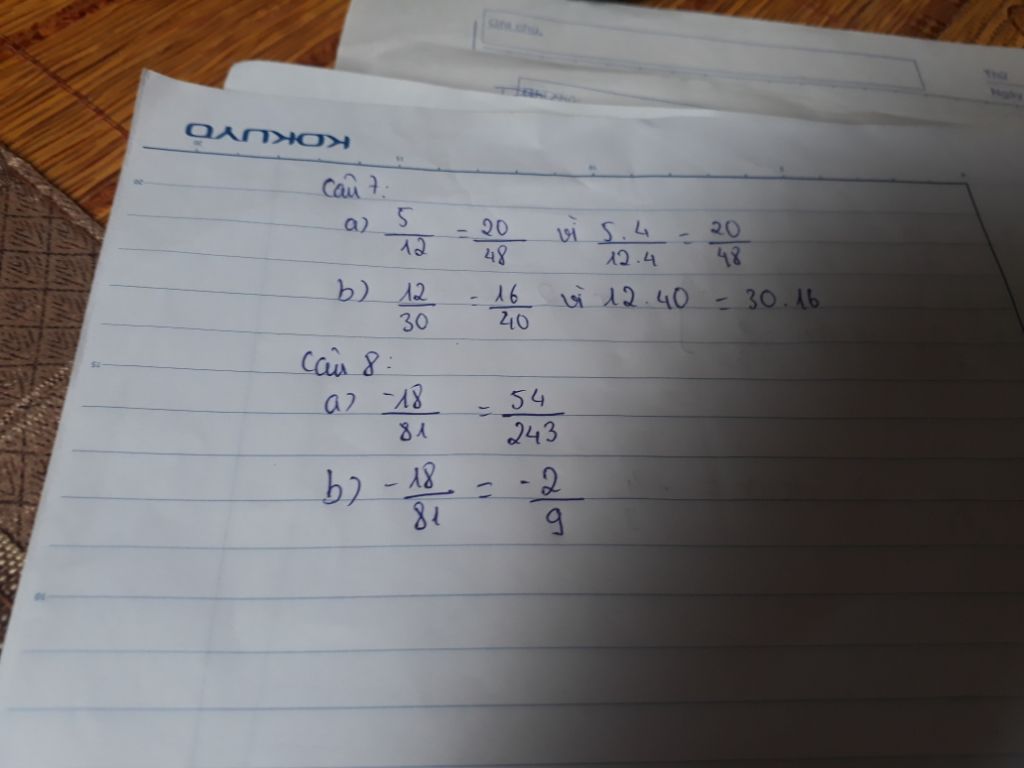 KOKUYO
Câu 7:
a) 5/12 = 20/48 vì 5.4/12.4 = 20/48
b) 12/30 = 16/40 vì 12.40 = 30.16
Câu 8:
a) -18/81 = 54/243
b) -18/81 = -2/9